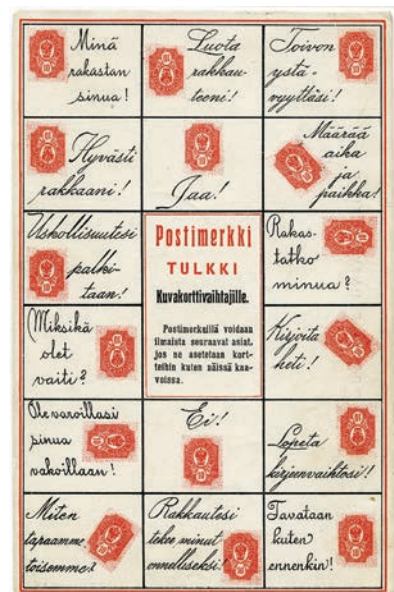 Minä
rakastan
sinua!
Luota
rakkau-
teeni!
Toivon
ystä-
vyyttäsi!
Hyvästi
rakkaani!
Jaa!
Määrää
aika
ja
paikka!
Uskollisuutesi
palki-
taan!
Postimerkki
TULKKI
Kuvakorttivaihtajille.
Postimerkuillä voidaan
ilmaista seuraavat asiat,
jos ne asetetaan kort-
teihin kuten näissä kaa-
voissa.
Rakas-
tatko
minua?
Miksikä
olet
vaiti?
Kirjoita
heti!
Ole varoillasi
sinua
vakoillaan!
Ei!
Lopeta
kirjeenvaihtosi!
Miten
tapaamme
toisemme?
Rakkautesi
tekee minut
onnelliseksi!
Tavataan
kuten
ennenkin!